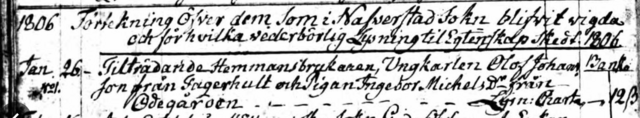 1806 Förtekning Öfver dem Som i Nafverstad Sokn blifvit vigda
och för hvilka vederborlig Lysning til Egtenskap Skedt. 1806.
Jan. 26 - Tilträdande Hemmansbrukaren, Ungkarlen Olof Johans
No 1. son från Fagerhult och Pigan Ingebor Michels Dr från
Ödegården Lysn: Charta 12 ß